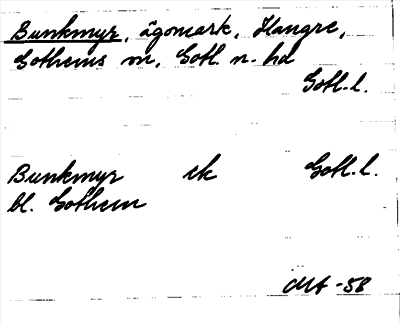 Bunkmyr, ägomark, Hangre,
Gothems sn, Gotl. n. hd
Gotl. l.
Bunkmyr ek Gotl. l.
bl. Gothem
MA -58